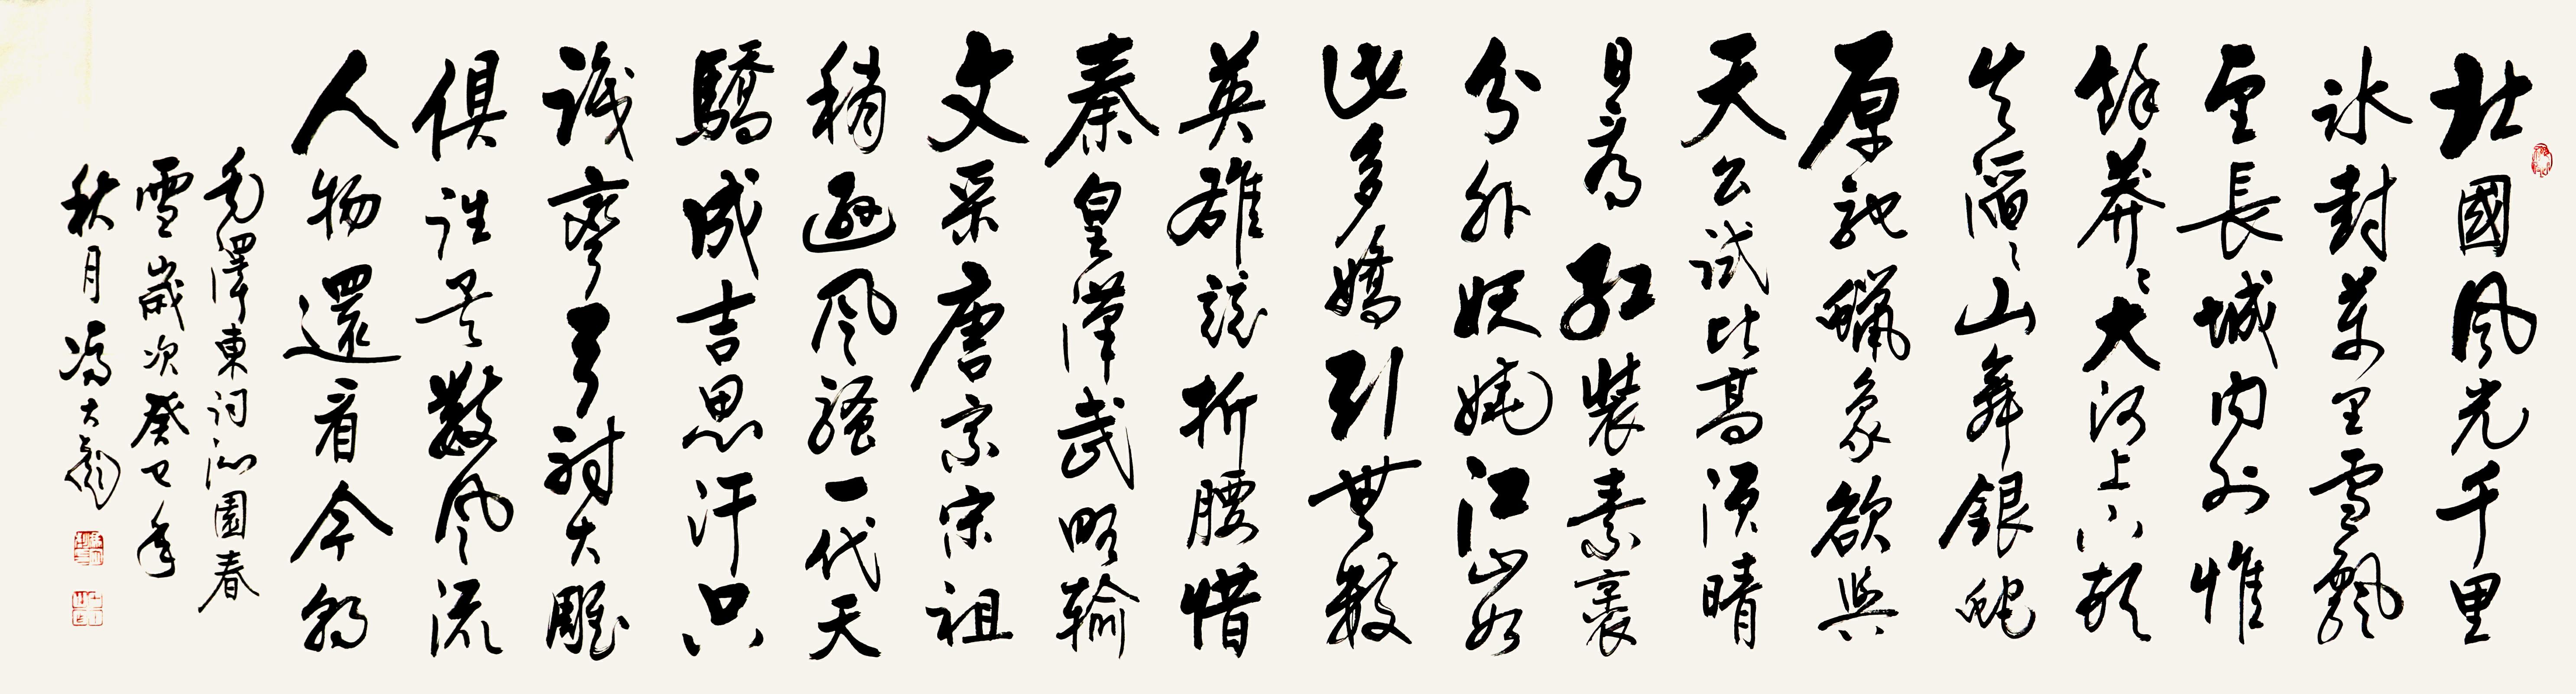 北國风光千里
冰封萬里雪飄
望長城内外惟
餘莽々大河上下頓
失滔々山舞銀蛇
原馳蠟象欲與
天公試比高須晴
日看紅裝素裹
分外妖嬈江山如
此多嬌引無數
英雄競折腰惜
秦皇漢武略輸
文采唐宗宋祖
稍遜风騷一代天
驕成吉思汗只
識彎弓射大雕
俱往矣數风流
人物還看今朝
毛澤東詞沁園春
雪歲次癸巳年
秋月馮大彪